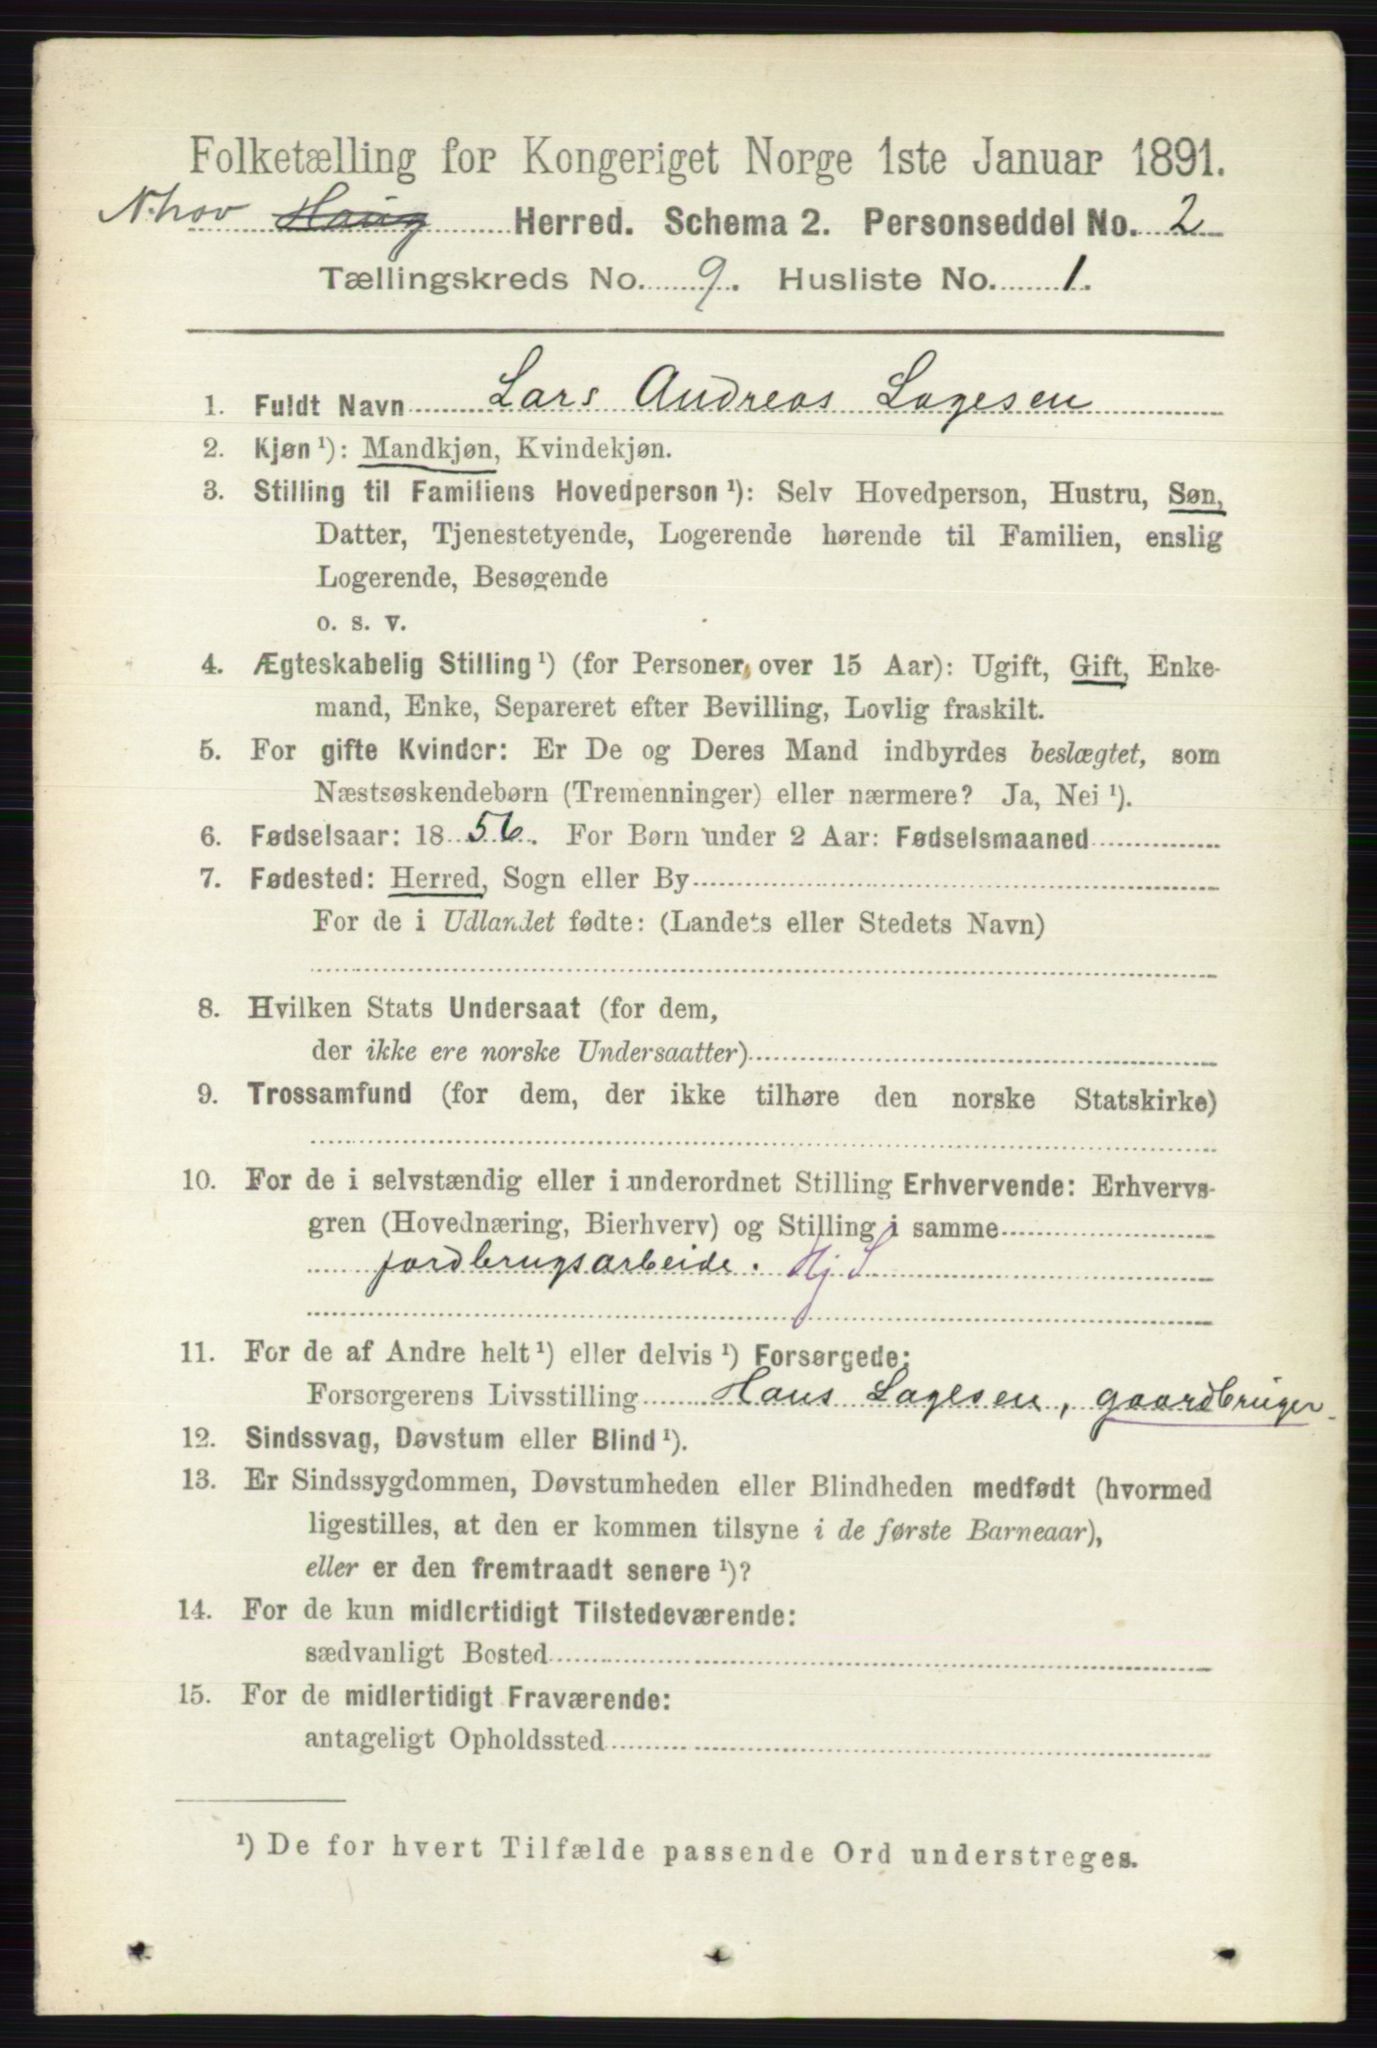 Folketælling for Kongeriget Norge 1ste Januar 1891.
N. hov Haug Herred. Schema 2. Personseddel No. 2
Tællingskreds No. 9. Husliste No. 1.
1. Fuldt Navn Lars Andreas Lagesen
2. Kjøn ¹): Mandkjøn, Kvindekjøn.
3. Stilling til Familiens Hovedperson ¹): Selv Hovedperson, Hustru, Søn,
Datter, Tjenestetyende, Logerende hørende til Familien, enslig
Logerende, Besøgende
o. s. v.
4. Ægteskabelig Stilling ¹) (for Personer over 15 Aar): Ugift, Gift, Enke-
mand, Enke, Separeret efter Bevilling, Lovlig fraskilt.
5. For gifte Kvinder: Er De og Deres Mand indbyrdes beslægtet, som
Næstsøskendebørn (Tremenninger) eller nærmere? Ja, Nei ¹).
6. Fødselsaar: 1856. For Børn under 2 Aar: Fødselsmaaned
7. Fødested: Herred, Sogn eller By
For de i Udlandet fødte: (Landets eller Stedets Navn)
8. Hvilken Stats Undersaat (for dem,
der ikke ere norske Undersaatter)
9. Trossamfund (for dem, der ikke tilhøre den norske Statskirke)
10. For de i selvstændig eller i underordnet Stilling Erhvervende: Erhvervs-
gren (Hovednæring, Bierhverv) og Stilling i samme
jordbrugsarbeide. Hj S
11. For de af Andre helt ¹) eller delvis ¹) Forsørgede:
Forsørgerens Livsstilling Hans Lagesen, gaardbruger
12. Sindssvag, Døvstum eller Blind ¹).
13. Er Sindssygdommen, Døvstumheden eller Blindheden medfødt (hvormed
ligestilles, at den er kommen tilsyne i de første Barneaar),
eller er den fremtraadt senere ¹)?
14. For de kun midlertidigt Tilstedeværende:
sædvanligt Bosted
15. For de midlertidigt Fraværende:
antageligt Opholdssted
¹) De for hvert Tilfælde passende Ord understreges.